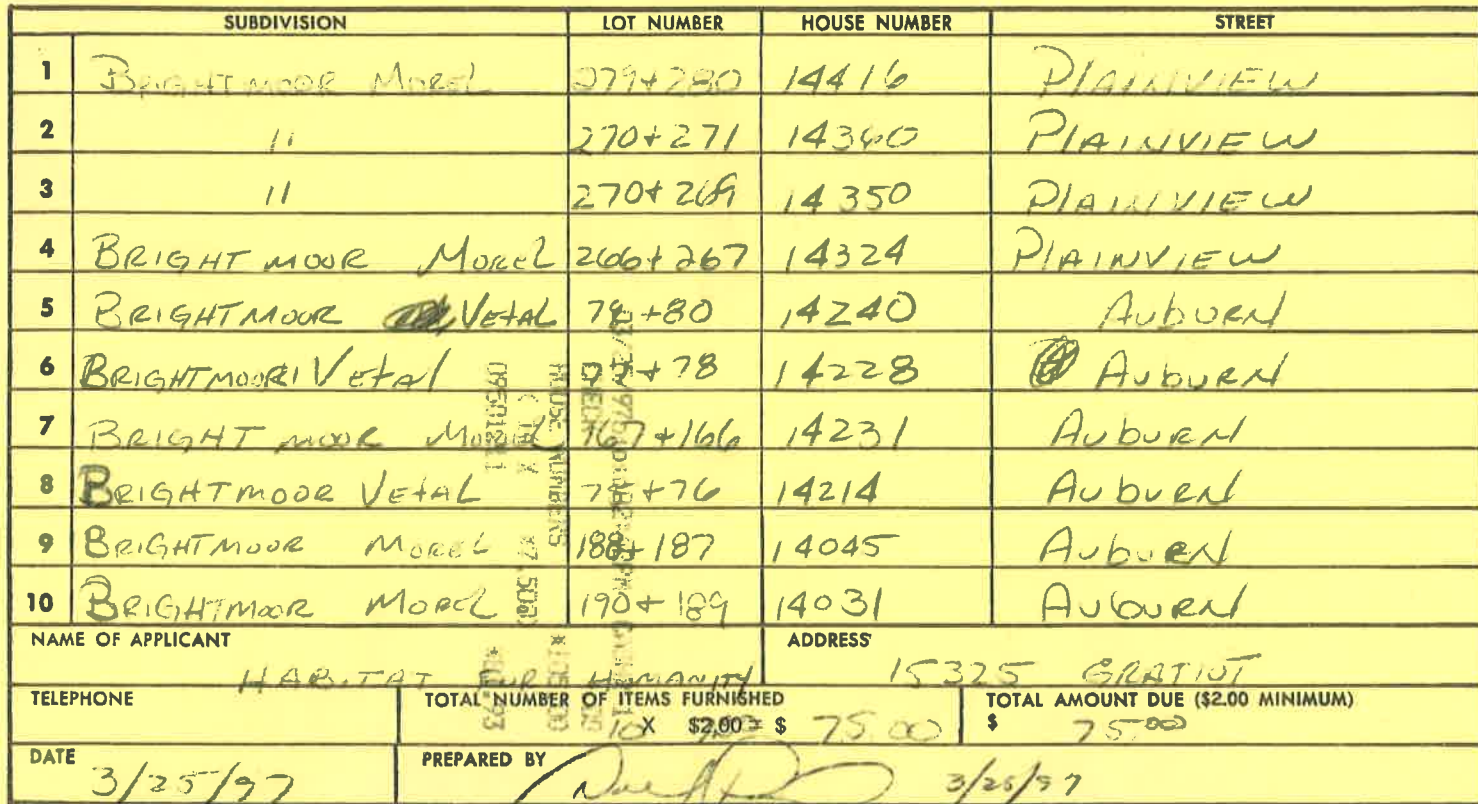 SUBDIVISION LOT NUMBER HOUSE NUMBER STREET
1 BRIGHTMOOR MOREL 279+280 14416 PLAINVIEW
2 " 270+271 14360 PLAINVIEW
3 " 270+269 14350 PLAINVIEW
4 BRIGHTMOOR MOREL 266+267 14324 PLAINVIEW
5 BRIGHTMOOR VETAL 79+80 14240 AUBURN
6 BRIGHTMOOR VETAL 77+78 14228 AUBURN
7 BRIGHTMOOR MOREL 167+166 14231 AUBURN
8 BRIGHTMOOR VETAL 75+76 14214 AUBURN
9 BRIGHTMOOR MOREL 188+187 14045 AUBURN
10 BRIGHTMOOR MOREL 190+189 14031 AUBURN
NAME OF APPLICANT ADDRESS
HABITAT FOR HUMANITY 15325 GRATIOT
TELEPHONE TOTAL NUMBER OF ITEMS FURNISHED TOTAL AMOUNT DUE ($2.00 MINIMUM)
10 X $2.00 = $ 75.00 $ 75.00
DATE PREPARED BY
3/25/97 3/25/97
CHECK
HOUSE NUMBERS